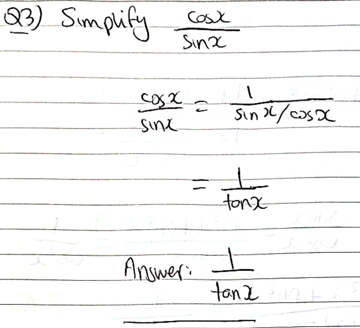 Q3) Simplify cosx/sinx
cosx/sinx = 1/(sinx/cosx)
= 1/tanx
Answer: 1/tanx